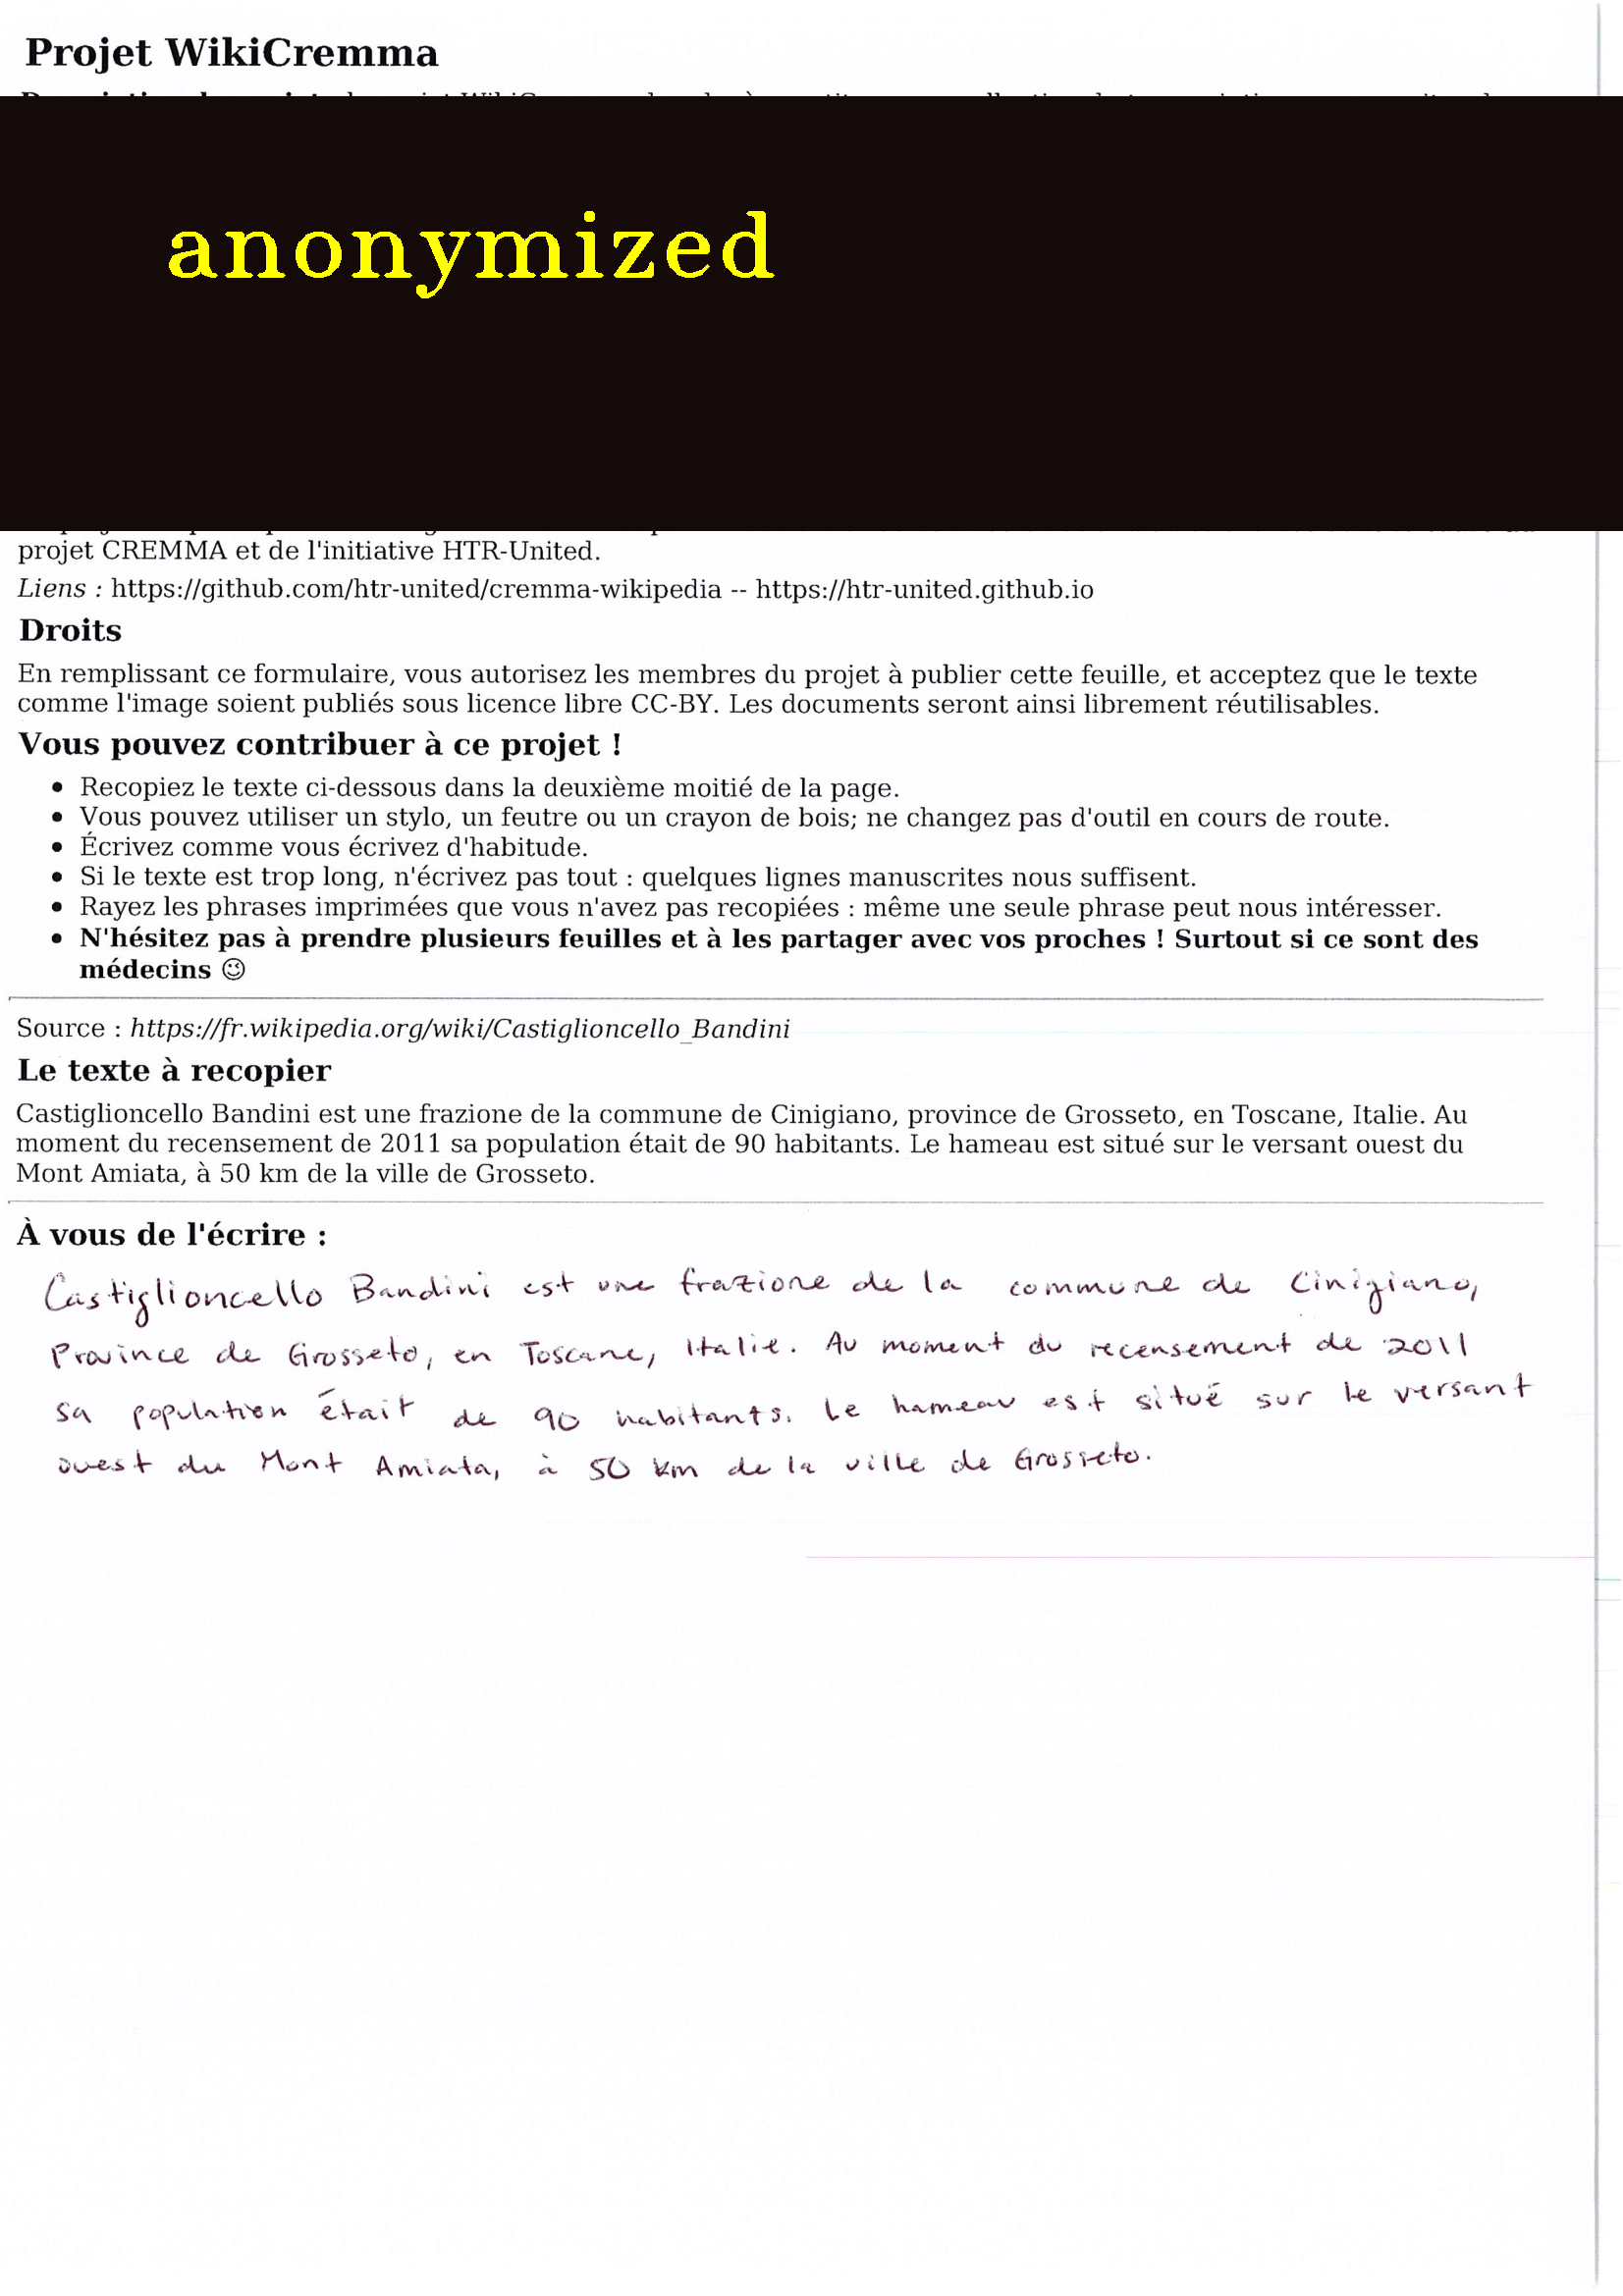 Projet WikiCremma
anonymized
projet CREMMA et de l'initiative HTR-United.
Liens : https://github.com/htr-united/cremma-wikipedia -- https://htr-united.github.io
Droits
En remplissant ce formulaire, vous autorisez les membres du projet à publier cette feuille, et acceptez que le texte
comme l'image soient publiés sous licence libre CC-BY. Les documents seront ainsi librement réutilisables.
Vous pouvez contribuer à ce projet !
• Recopiez le texte ci-dessous dans la deuxième moitié de la page.
• Vous pouvez utiliser un stylo, un feutre ou un crayon de bois; ne changez pas d'outil en cours de route.
• Écrivez comme vous écrivez d'habitude.
• Si le texte est trop long, n'écrivez pas tout : quelques lignes manuscrites nous suffisent.
• Rayez les phrases imprimées que vous n'avez pas recopiées : même une seule phrase peut nous intéresser.
• N'hésitez pas à prendre plusieurs feuilles et à les partager avec vos proches ! Surtout si ce sont des
médecins 😉
Source : https://fr.wikipedia.org/wiki/Castiglioncello_Bandini
Le texte à recopier
Castiglioncello Bandini est une frazione de la commune de Cinigiano, province de Grosseto, en Toscane, Italie. Au
moment du recensement de 2011 sa population était de 90 habitants. Le hameau est situé sur le versant ouest du
Mont Amiata, à 50 km de la ville de Grosseto.
À vous de l'écrire :
Castiglioncello Bandini est une frazione de la commune de Cinigiano,
Province de Grosseto, en Toscane, Italie. Au moment du recensement de 2011
sa population était de 90 habitants. Le hameau est situé sur le versant
ouest du Mont Amiata, à 50 km de la ville de Grosseto.